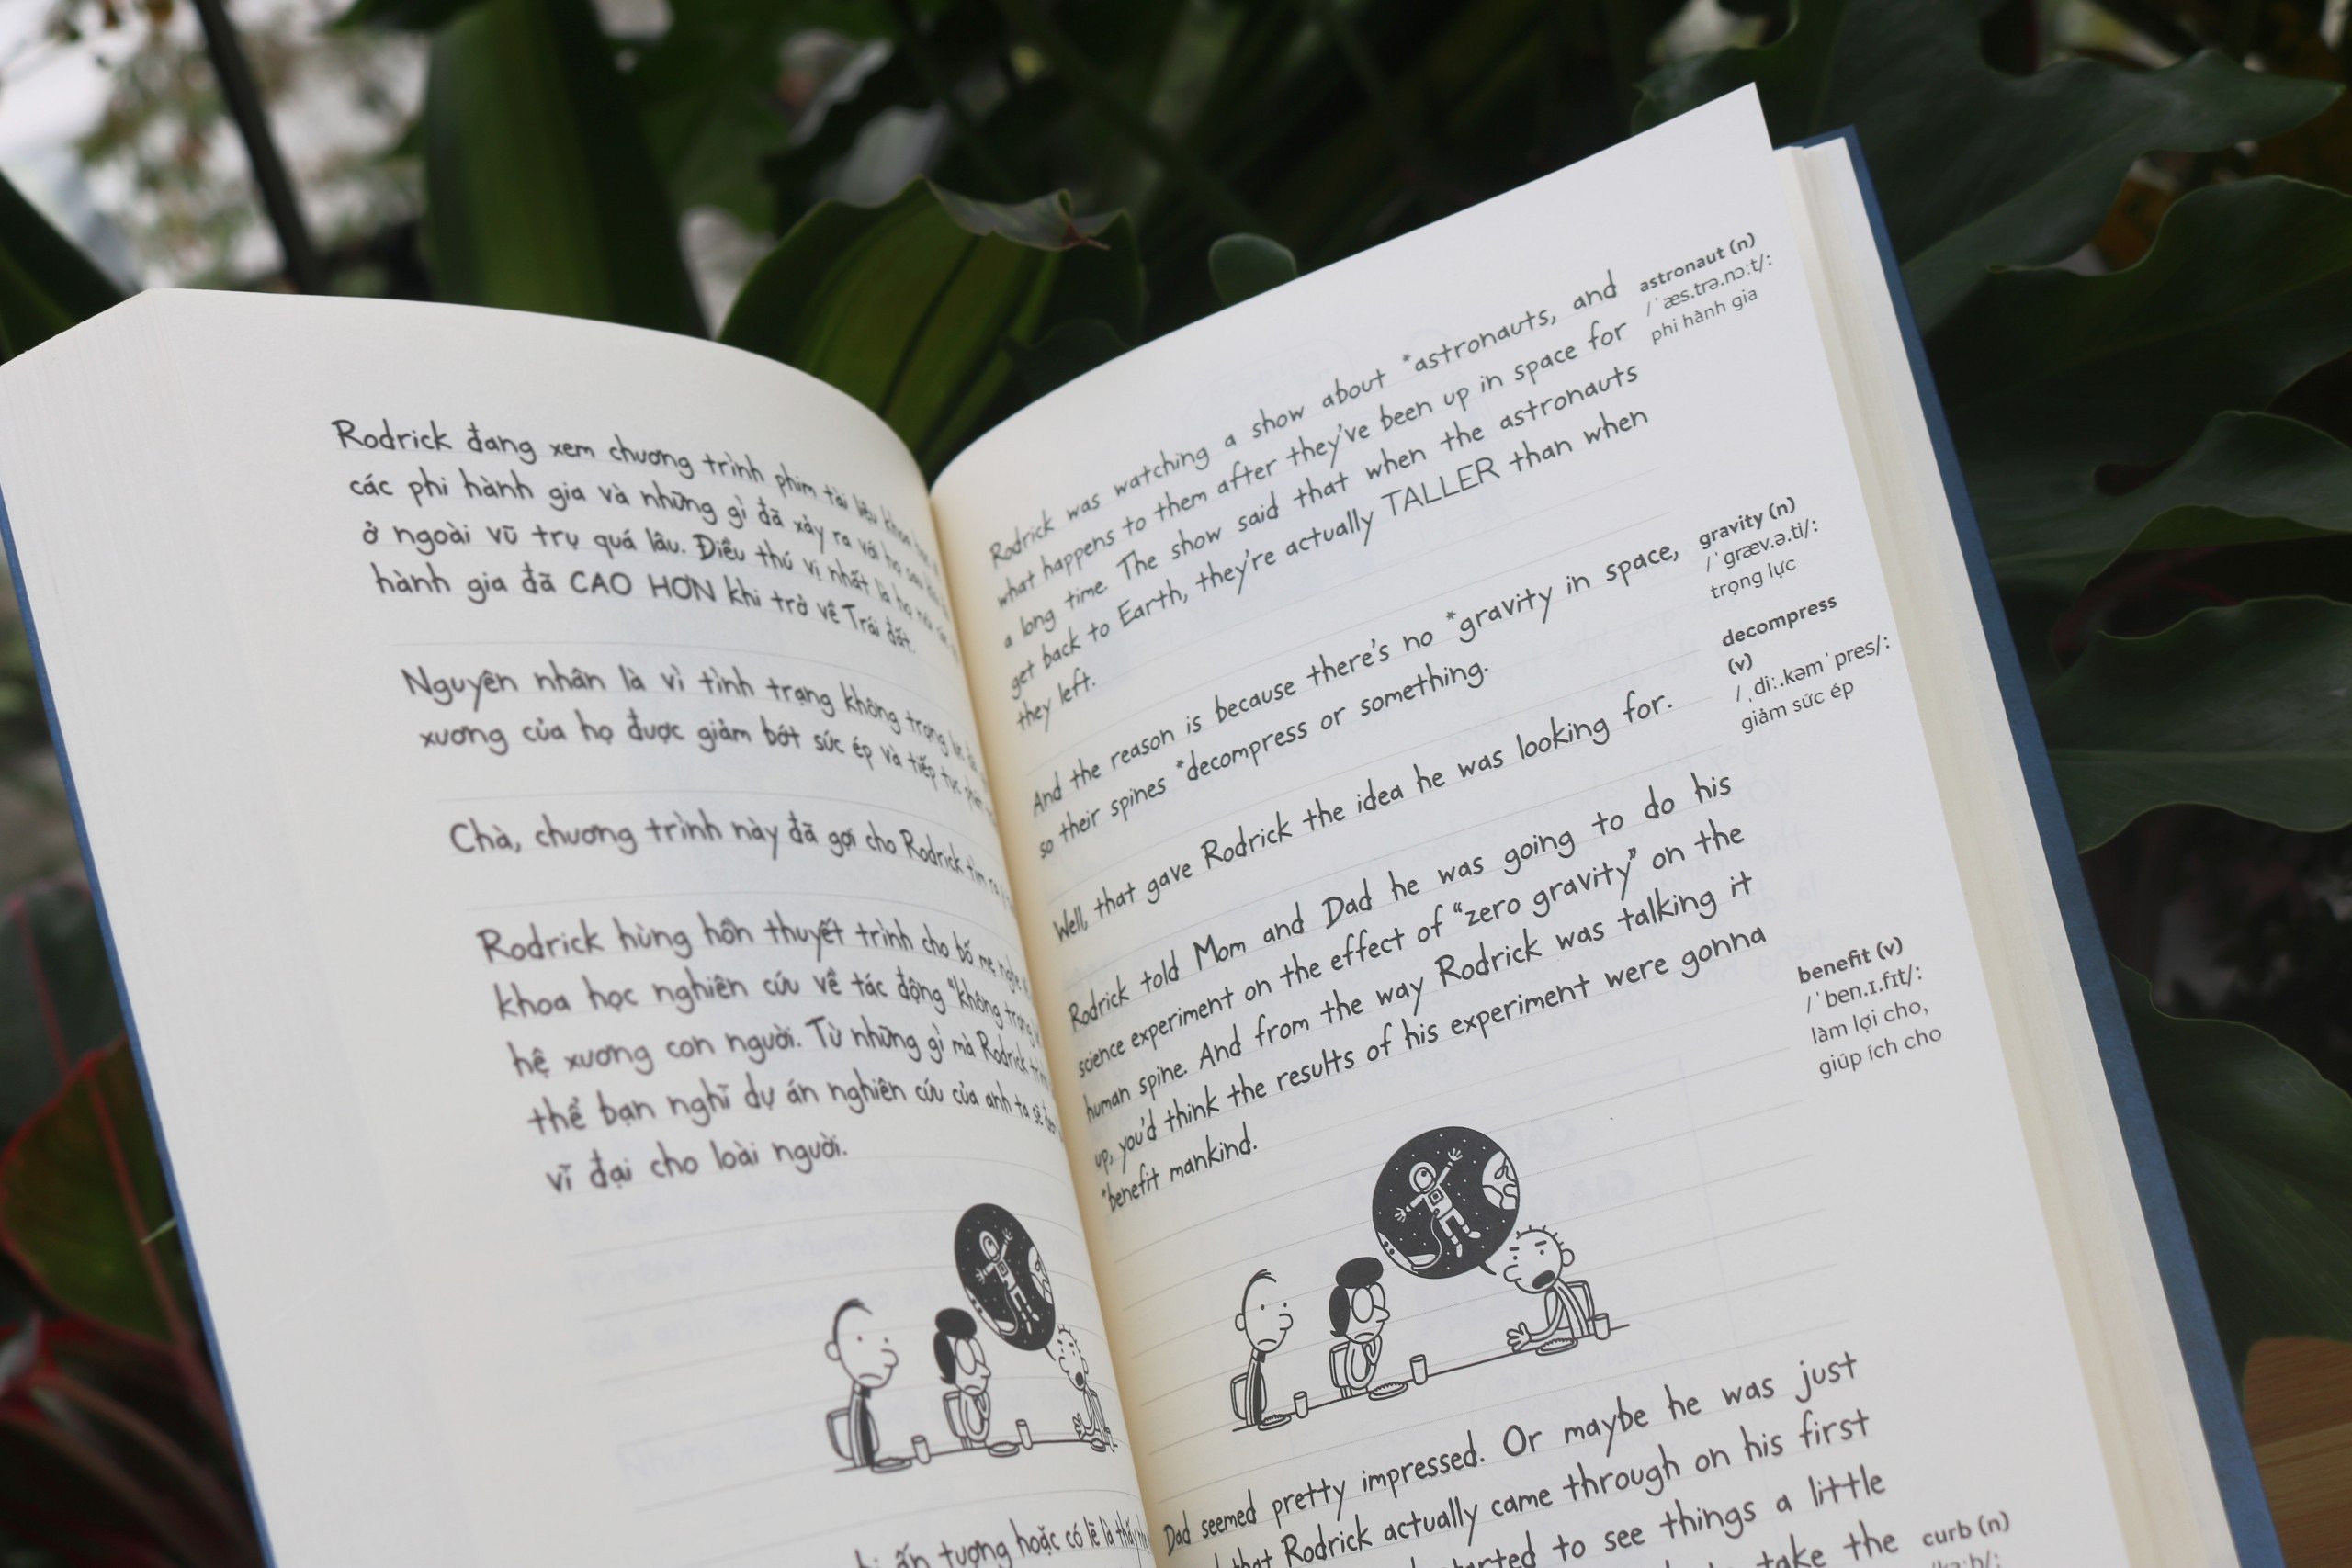 Rodrick đang xem chương trình phim tài liệu khoa
các phi hành gia và những gì đã xảy ra với họ sau
ở ngoài vũ trụ quá lâu. Điều thú vị nhất là họ nói
hành gia đã CAO HƠN khi trở về Trái đất.
Nguyên nhân là vì tình trạng không trọng lực
xương của họ được giảm bớt sức ép và tiếp tục
Chà, chương trình này đã gợi cho Rodrick tìm ra
Rodrick hùng hồn thuyết trình cho bố mẹ nghe
khoa học nghiên cứu về tác động "không trọng
hệ xương con người. Từ những gì mà Rodrick
thể bạn nghĩ dự án nghiên cứu của anh ta sẽ
vĩ đại cho loài người.
ấn tượng hoặc có lẽ là
Rodrick was watching a show about *astronauts, and
what happens to them after they've been up in space for
a long time. The show said that when the astronauts
get back to Earth, they're actually TALLER than when
they left.
And the reason is because there's no *gravity in space,
so their spines *decompress or something.
Well, that gave Rodrick the idea he was looking for.
Rodrick told Mom and Dad he was going to do his
science experiment on the effect of "zero gravity" on the
human spine. And from the way Rodrick was talking it
up, you'd think the results of his experiment were gonna
*benefit mankind.
Dad seemed pretty impressed. Or maybe he was just
that Rodrick actually came through on his first
to see things a little
take the
astronaut (n)
/ˈæs.trə.nɔːt/:
phi hành gia
gravity (n)
/ˈɡræv.ə.ti/:
trọng lực
decompress
(v)
/ˌdiː.kəmˈpres/:
giảm sức ép
benefit (v)
/ˈben.ɪ.fɪt/:
làm lợi cho,
giúp ích cho
curb (n)